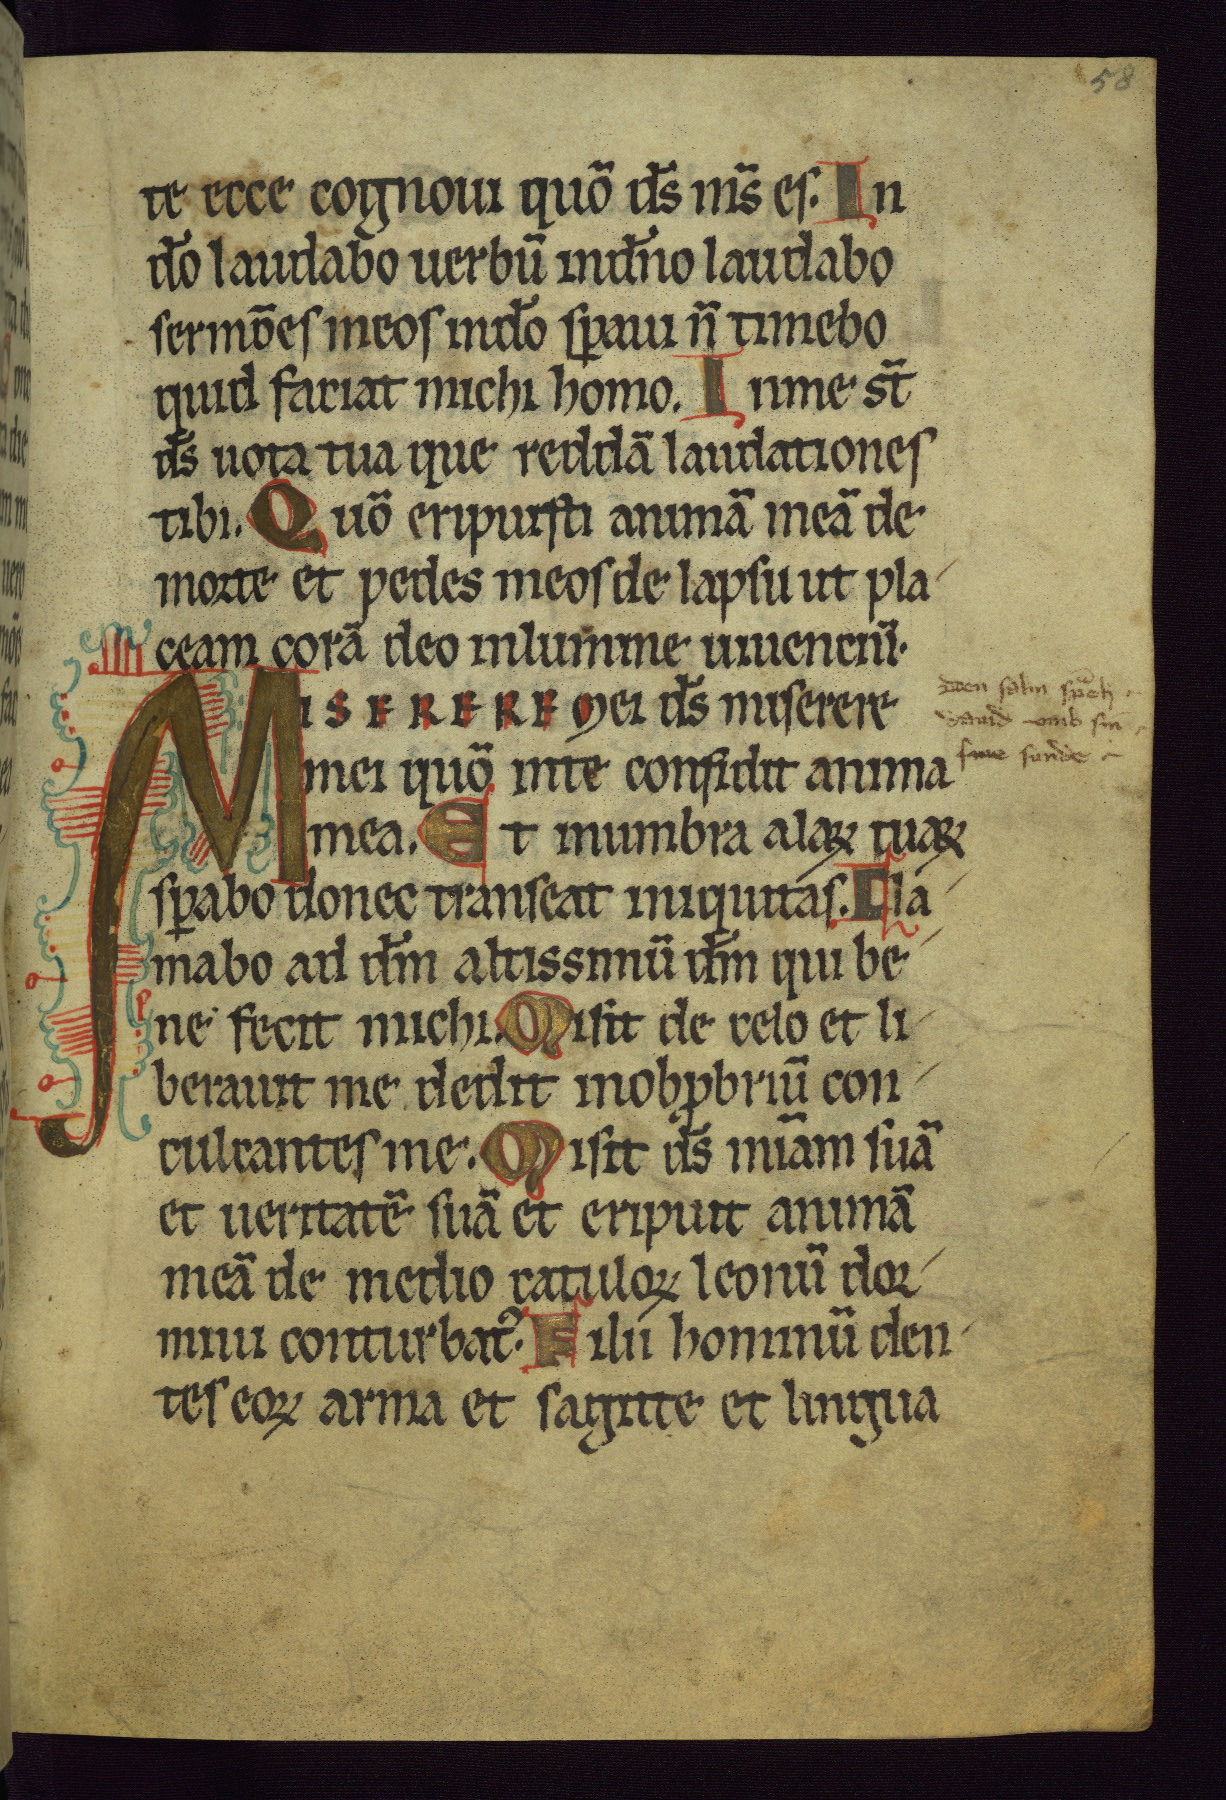 58
te ecce cognoui quō ds̄ ms̄ es. In
dō laudabo uerbū indn̄o laudabo
sermōes meos indō sp̄aui n̄ timebo
quid faciat michi homo. Inme st̄
ds̄ uota tua que reddā laudationes
tibi. Quō eripuisti animā meā de
morte et pedes meos de lapsu ut pla
ceam corā deo inlumine uiuenciū.
MISERERE Mei ds̄ miserere
mei quō inte confidit anima
mea. Et inumbra alaꝝ tuaꝝ
sꝑabo donec transeat iniquitas. Cla
mabo ad dm̄ altissimū dm̄ qui be
ne fecit michi. Misit de celo et li
berauit me dedit inobꝓbriū con
culcantes me. Misit ds̄ miām suā
et ueritatē suā et eripuit animā
meā de medio catuloꝝ leonū dor
miui conturbat᷒. Filii hominū den
tes eoꝝ arma et sagitte et lingua
den salm sp̄ch
dauid vmb sin
sunde